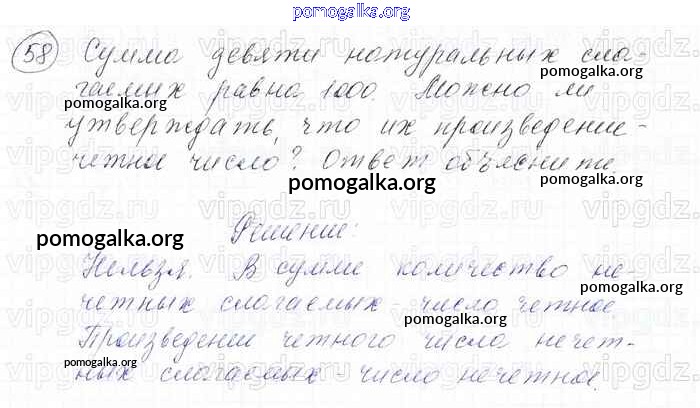 pomogalka.org
58 Сумма девяти натуральных сла-
гаемых равна 1000. Можно ли
pomogalka.org pomogalka.org
утверждать, что их произведение -
четное число? Ответ объясните.
pomogalka.org
Решение:
pomogalka.org
Нельзя. В сумме количество не-
pomogalka.org
четных слагаемых - число четное
pomogalka.org
Произведении четного числа нечет-
pomogalka.org
ных слагаемых - число нечетное.
pomogalka.org